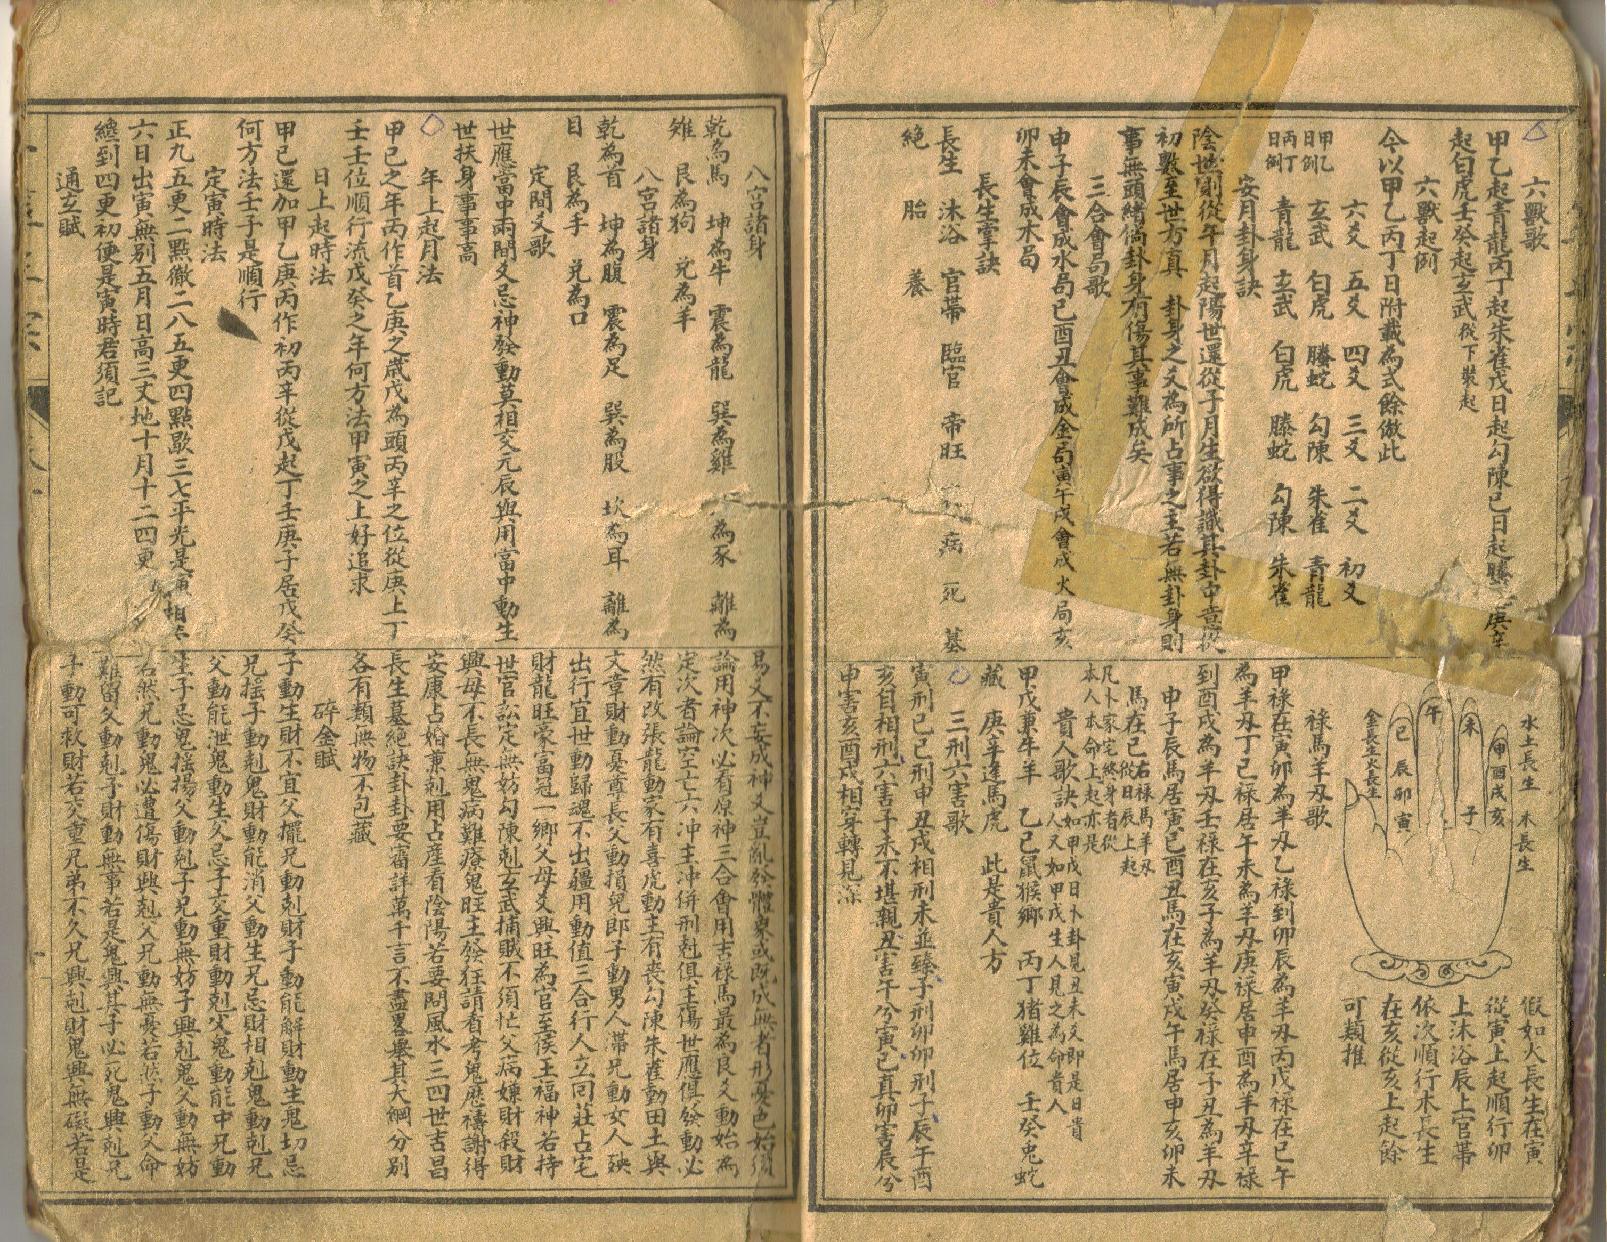 六獸歌
甲乙起青龍丙丁起朱雀戊日起勾陳己日起螣蛇庚辛
起白虎壬癸起玄武從下裝起
六獸起例
今以甲乙丙丁日附載為式餘倣此
六爻 五爻 四爻 三爻 二爻 初爻
甲乙日例 玄武 白虎 螣蛇 勾陳 朱雀 青龍
丙丁日例 青龍 玄武 白虎 螣蛇 勾陳 朱雀
安月卦身訣
陰世則從午月起陽世還從子月生欲得識其卦中意從
初數至世方真 卦身之爻為所占事之主若無卦身則
事無頭緒倘卦身有傷其事難成矣
三合會局歌
申子辰會成水局巳酉丑會成金局寅午戌會成火局亥
卯未會成木局
長生掌訣
長生 沐浴 官帶 臨官 帝旺 病 死 墓
絕 胎 養
水土長生 木長生
申酉戌亥
未 子
午
巳 辰卯寅
金長生火長生
假如火長生在寅
從寅上起順行卯
上沐浴辰上官帶
依次順行木長生
在亥從亥上起餘
可類推
祿馬羊刃歌
甲祿在寅卯為羊刃乙祿到卯辰為羊刃丙戊祿在巳午
為羊刃丁己祿居午未為羊刃庚祿居申酉為羊刃辛祿
到酉戌為羊刃壬祿在亥子為羊刃癸祿在子丑為羊刃
申子辰馬居寅巳酉丑馬在亥寅戌午馬居申亥卯未
馬在巳右祿馬羊刃從日辰上起
凡卜家宅終身者從本人本命上起亦是
貴人歌訣如甲戊日卜卦見丑未爻即是日貴人又如甲戊生人見之為命貴人
甲戊兼牛羊 乙己鼠猴鄉 丙丁猪雞位 壬癸兔蛇
藏 庚辛逢馬虎 此是貴人方
三刑六害歌
寅刑巳巳刑申丑戌相刑未並臻子刑卯卯刑子辰午酉
亥自相刑六害子未不堪親丑害午兮寅巳真卯害辰兮
申害亥酉戌相穿轉見深
八宮諸身
乾為馬 坤為牛 震為龍 巽為雞 為豕 離為
雉 艮為狗 兌為羊
八宮諸身
乾為首 坤為腹 震為足 巽為股 坎為耳 離為
目 艮為手 兌為口
定間爻歌
世應當中兩間爻忌神發動莫相交元辰與用當中動生
世扶身事事高
年上起月法
甲己之年丙作首乙庚之歲戊為頭丙辛之位從庚上丁
壬壬位順行流戊癸之年何方法甲寅之上好追求
日上起時法
甲己還加甲乙庚丙作初丙辛從戊起丁壬庚子居戊癸
何方法壬子是順行
定寅時法
正九五更二點徹二八五更四點歇三七平光是寅
六日出寅無別五月日高三丈地十月十二四更
纔到四更初便是寅時君須記
通玄賦
易爻不妄成神爻豈亂發體象或既成無者形憂色始須
論用神次必看原神三合會用吉祿馬最為良爻動始為
定次者論空亡六冲主冲併刑剋俱主傷世應俱發動必
然有改張龍動家有喜虎動主有喪勾陳朱雀動田土與
文章財動憂尊長父動損兒郎子動男人滯兄動女人殃
出行宜世動歸魂不出疆用動值三合行人立回莊占宅
財龍旺豪富冠一鄉父母爻興旺為官至侯王福神若持
世官訟定無妨勾陳剋玄武捕賊不須忙父病嫌財殺財
興母不長無鬼病難療鬼旺主發狂請看考鬼應禱謝得
安康占婚兼剋用占產看陰陽若要問風水三四世吉昌
長生墓絕訣卦卦要審詳萬千言不盡畧舉其大綱分別
各有類無物不包藏
碎金賦
子動生財不宜父擺兄動剋財子動能解財動生鬼切忌
兄搖子動剋鬼財動能消父動生兄忌財相剋鬼動剋兄
父動能泄鬼動生父忌子交重財動剋父鬼動能中兄動
生子忌鬼搖揚父動剋子兄動無妨子興剋鬼父動無妨
若然兄動鬼必遭傷財興剋父兄動無憂若然子動父命
難留父動剋子財動無事若是鬼興其子必死鬼興剋兄
子動可救財若交重兄弟不久兄興剋財鬼興無礙若是